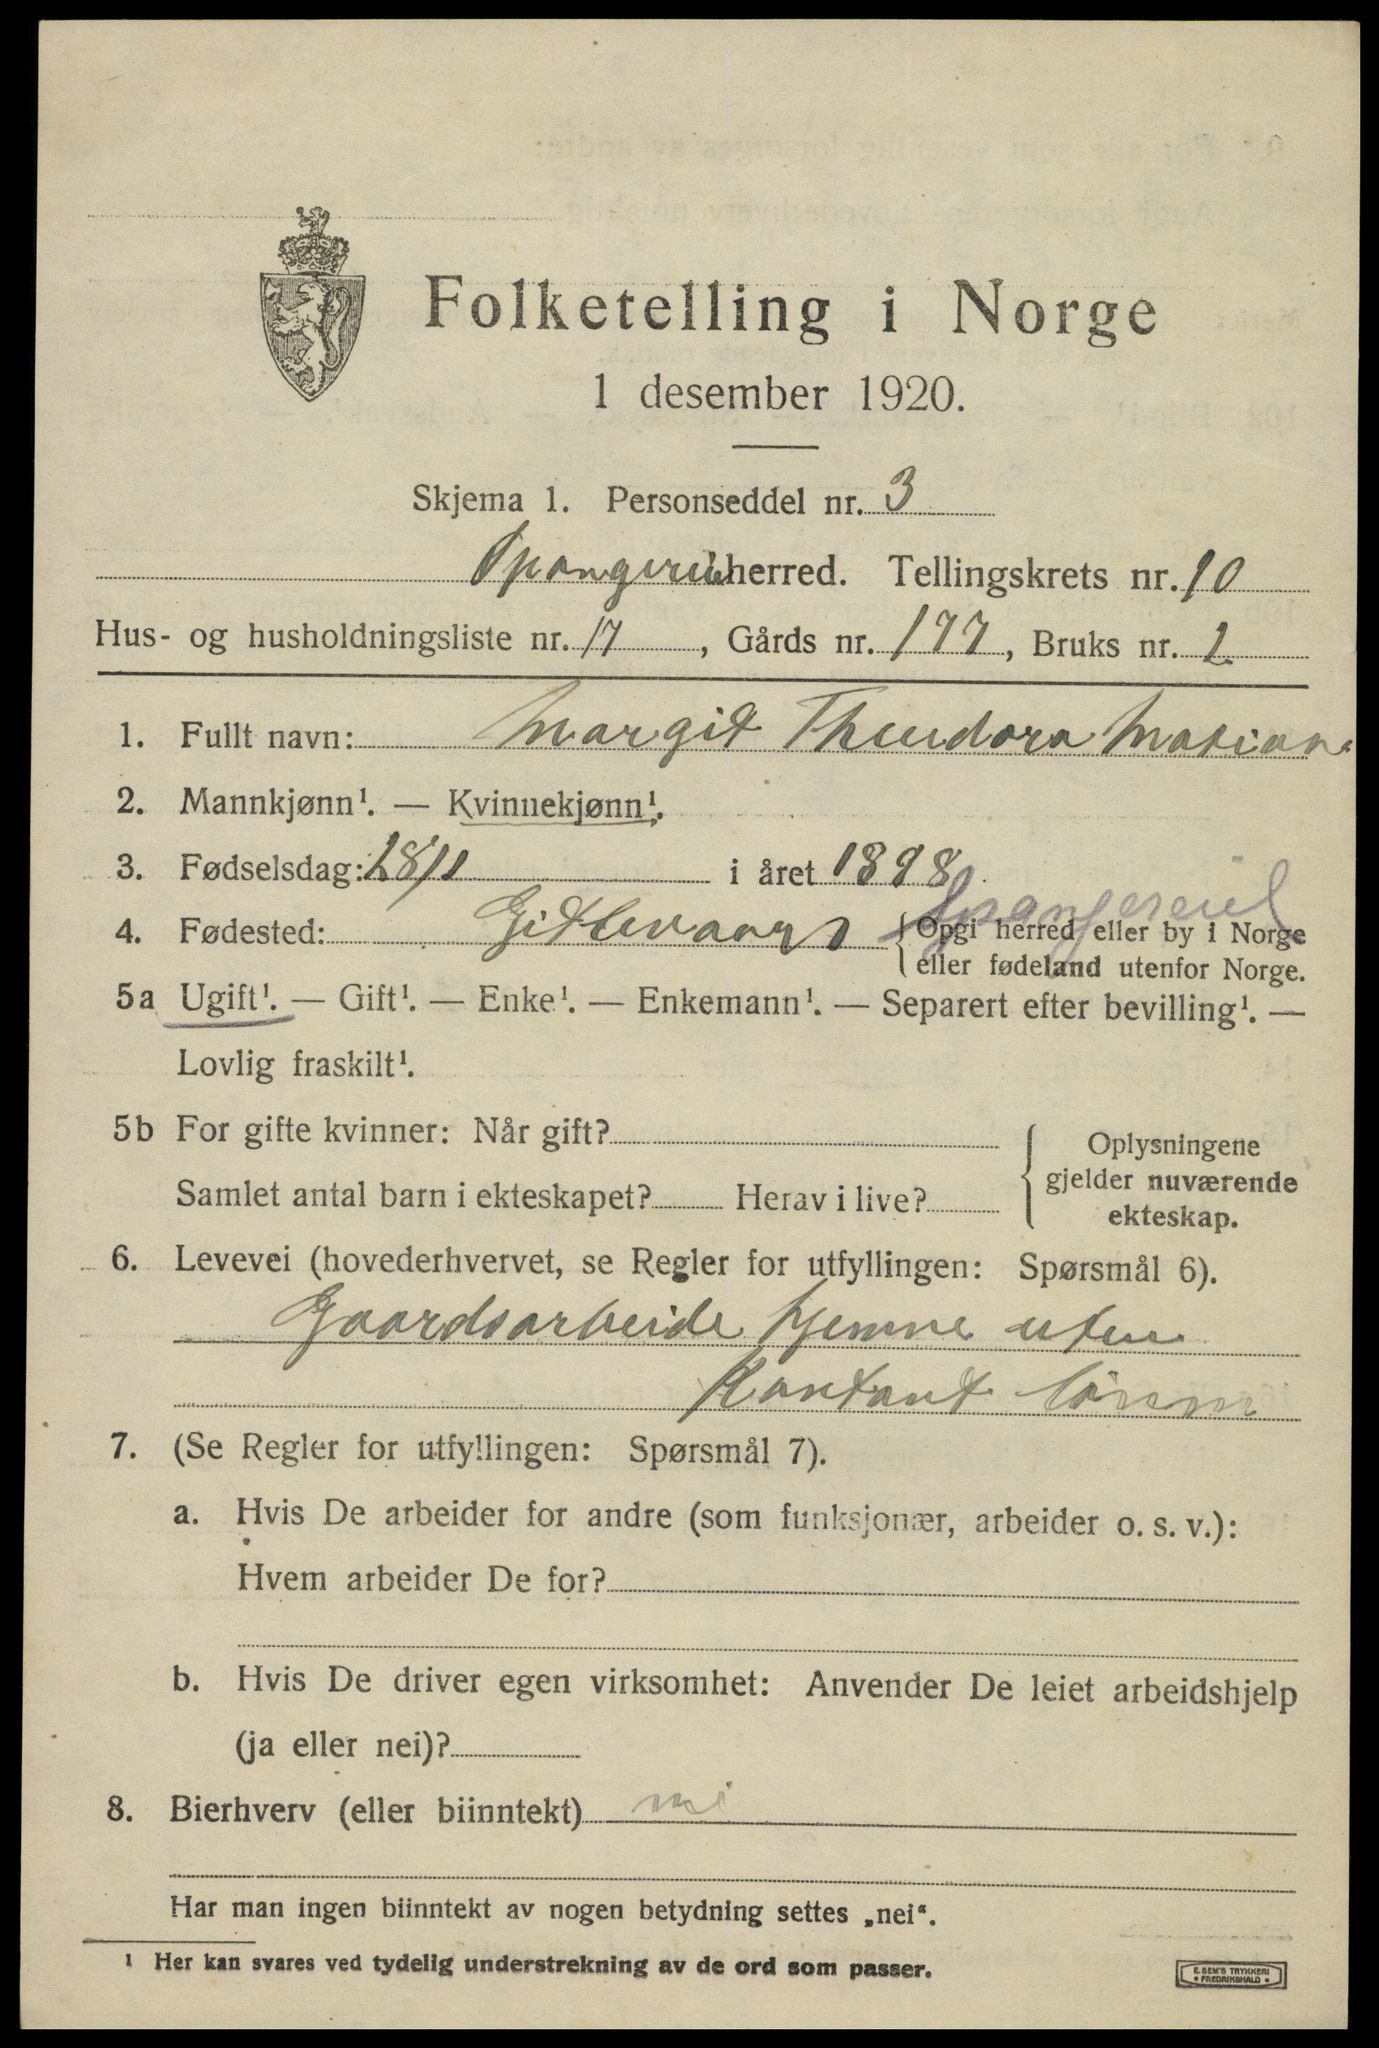 Folketelling i Norge
1 desember 1920.
Skjema 1. Personseddel nr. 3
Spangereid herred. Tellingskrets nr. 10
Hus- og husholdningsliste nr. 17, Gårds nr. 177, Bruks nr. 1
1. Fullt navn: Margit Theodora
2. Mannkjønn¹. — Kvinnekjønn¹.
3. Fødselsdag: 28/1 i året 1898.
Spangereid
4. Fødested: Gitlevaag { Opgi herred eller by i Norge
eller fødeland utenfor Norge.
5a Ugift¹. — Gift¹. — Enke¹. — Enkemann¹. — Separert efter bevilling¹. —
Lovlig fraskilt¹.
5b For gifte kvinner: Når gift?
Samlet antal barn i ekteskapet? Herav i live?
{ Oplysningene
gjelder nuværende
ekteskap.
6. Levevei (hovederhvervet, se Regler for utfyllingen: Spørsmål 6).
Gaardsarbeide hjemme uten
Kontant lønn
7. (Se Regler for utfyllingen: Spørsmål 7).
a. Hvis De arbeider for andre (som funksjonær, arbeider o. s. v.):
Hvem arbeider De for?
b. Hvis De driver egen virksomhet: Anvender De leiet arbeidshjelp
(ja eller nei)?
8. Bierhverv (eller biinntekt) nei
Har man ingen biinntekt av nogen betydning settes „nei“.
1 Her kan svares ved tydelig understrekning av de ord som passer.
E. SEM'S TRYKKERI
• FREDRIKSHALD •